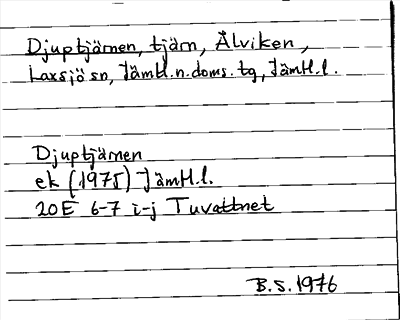 Djuptjärnen, tjärn, Älviken,
Laxsjö sn, Jämtl.n.doms.tg, Jämtl.l.
Djuptjärnen
ek (1975) Jämtl.l.
20E 6-7 i-j Tuvattnet
B.S. 1976